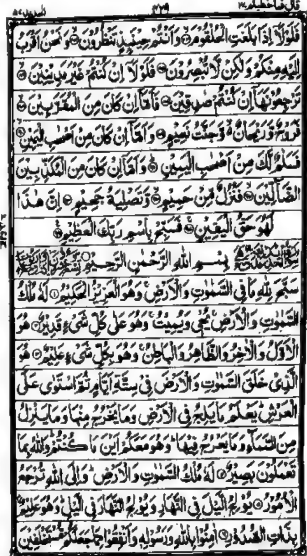 قال فما خطبكم ٢٧
فَلَوْلَا إِذَا بَلَغَتِ الْحُلْقُومَ وَأَنْتُمْ حِينَئِذٍ تَنْظُرُونَ وَنَحْنُ أَقْرَبُ
إِلَيْهِ مِنْكُمْ وَلَكِنْ لَا تُبْصِرُونَ فَلَوْلَا إِنْ كُنْتُمْ غَيْرَ مَدِينِينَ
تَرْجِعُونَهَا إِنْ كُنْتُمْ صَدِقِينَ فَأَمَّا إِنْ كَانَ مِنَ الْمُقَرَّبِينَ
فَرَوْحٌ وَرَيْحَانٌ وَجَنَّتُ نَعِيمٍ وَأَمَّا إِنْ كَانَ مِنْ أَصْحَبِ الْيَمِينِ
فَسَلَمٌ لَكَ مِنْ أَصْحَبِ الْيَمِينِ وَأَمَّا إِنْ كَانَ مِنَ الْمُكَذِّبِينَ
الضَّالِّينَ فَنُزُلٌ مِنْ حَمِيمٍ وَتَصْلِيَةُ جَحِيمٍ إِنَّ هَذَا
لَهُوَ حَقُّ الْيَقِينِ فَسَبِّحْ بِاسْمِ رَبِّكَ الْعَظِيمِ
بِسْمِ اللهِ الرَّحْمَنِ الرَّحِيمِ
سَبَّحَ لِلَّهِ مَا فِي السَّمَوَتِ وَالْأَرْضِ وَهُوَ الْعَزِيزُ الْحَكِيمُ لَهُ مُلْكُ
السَّمَوَتِ وَالْأَرْضِ يُحْيِ وَيُمِيتُ وَهُوَ عَلَى كُلِّ شَيْءٍ قَدِيرٌ هُوَ
الْأَوَّلُ وَالْآخِرُ وَالظَّاهِرُ وَالْبَاطِنُ وَهُوَ بِكُلِّ شَيْءٍ عَلِيمٌ هُوَ
الَّذِي خَلَقَ السَّمَوَتِ وَالْأَرْضَ فِي سِتَّةِ أَيَّامٍ ثُمَّ اسْتَوَى عَلَى
الْعَرْشِ يَعْلَمُ مَا يَلِجُ فِي الْأَرْضِ وَمَا يَخْرُجُ مِنْهَا وَمَا يَنْزِلُ
مِنَ السَّمَاءِ وَمَا يَعْرُجُ فِيهَا وَهُوَ مَعَكُمْ أَيْنَ مَا كُنْتُمْ وَاللهُ بِمَا
تَعْمَلُونَ بَصِيرٌ لَهُ مُلْكُ السَّمَوَتِ وَالْأَرْضِ وَإِلَى اللهِ تُرْجَعُ
الْأُمُورُ يُولِجُ الَّيْلَ فِي النَّهَارِ وَيُولِجُ النَّهَارَ فِي الَّيْلِ وَهُوَ عَلِيمٌ
بِذَاتِ الصُّدُورِ آمِنُوا بِاللهِ وَرَسُولِهِ وَأَنْفِقُوا مِمَّا جَعَلَكُمْ مُسْتَخْلَفِينَ